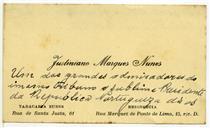 Justiniano Marques Nunes
Um dos grandes admiradores do
imenso Tribuno e sublime Presidente
da Republica Portugueza
TABACARIA RUSSA
Rua de Santa Justa, 61
RESIDENCIA
Rua Marquez de Ponte de Lima, 15, r/c. D.